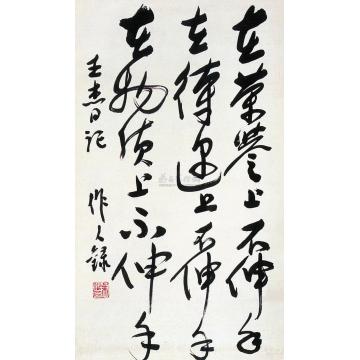 在荣誉上不伸手
在待遇上不伸手
在物质上不伸手
王杰日记
作人录